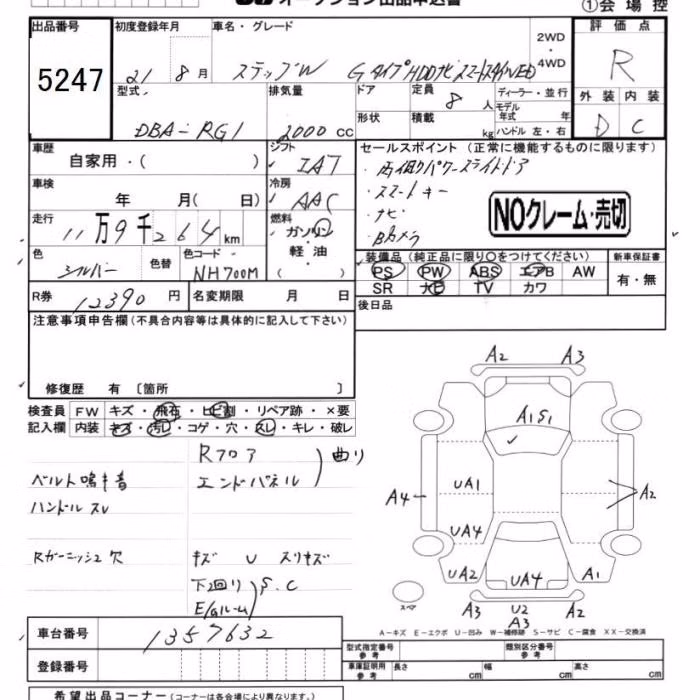 オークション出品申込書
①会場控
出品番号
5247
初度登録年月
21 8月
車名・グレード
ステップW GタイプHDDナビスマートスタイルED
2WD
・
4WD
評価点
R
型式
DBA-RG1
排気量
2000 CC
ドア
形状
定員
8 人
積載
kg
ディーラー・並行
モデル
年式 年
ハンドル 左・右
外装 内装
D C
車歴
自家用・( )
シフト
IAT
車検
年 月( 日)
冷房
AAC
走行
11万9千264km
燃料
ガソリン
軽油
( )
色
シルバー
色替
色コード
NH700M
R券
12390 円
名変期限 月 日
セールスポイント(正常に機能するものに限ります)
・両側パワースライドドア
・スマートキー
・ナビ
・Bカメラ
NOクレーム・売切
装備品(純正品に限り○をつけてください)
PS PW ABS エアB AW
SR ナビ TV カワ
新車保証書
有・無
後日品
注意事項申告欄(不具合内容等は具体的に記入して下さい)
修復歴 有 〔箇所 〕
検査員
記入欄
FW キズ・飛石・ヒビ割・リペア跡・×要
内装 キズ・汚レ・コゲ・穴・スレ・キレ・破レ
ベルト鳴き音
ハンドルスレ
Rガーニッシュ穴
Rフロア
エンドパネル
曲り
キズ U スリキズ
下廻り
E/gルーム
S.C
A2 A3
A1S1
A4
UA1
UA4
UA2
UA4
A2
A1
スペア
A3 U2 A2
A3
A-キズ E-エクボ U-凹み W-補修跡 S-サビ C-腐食 XX-交換済
車台番号
1357632
登録番号
型式指定番号
参考
類別区分番号
参考
車庫証明用
参考
長さ cm 幅 cm 高さ cm
希望出品コーナー(コーナーは各会場により異なります。)